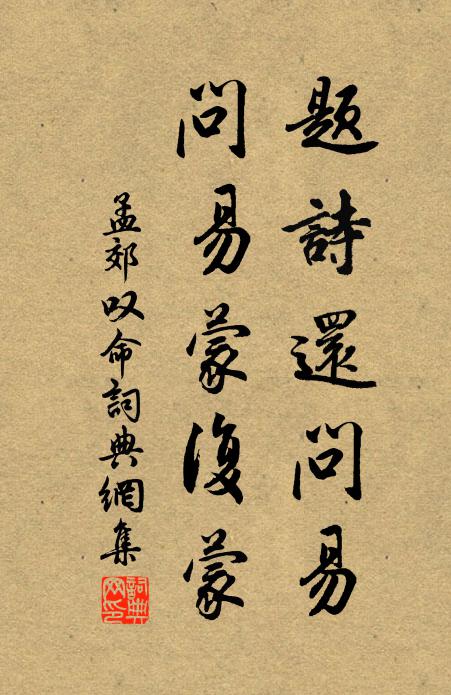 題詩還問易
問易蒙復蒙
孟郊叹命詞典網集
詞典网印